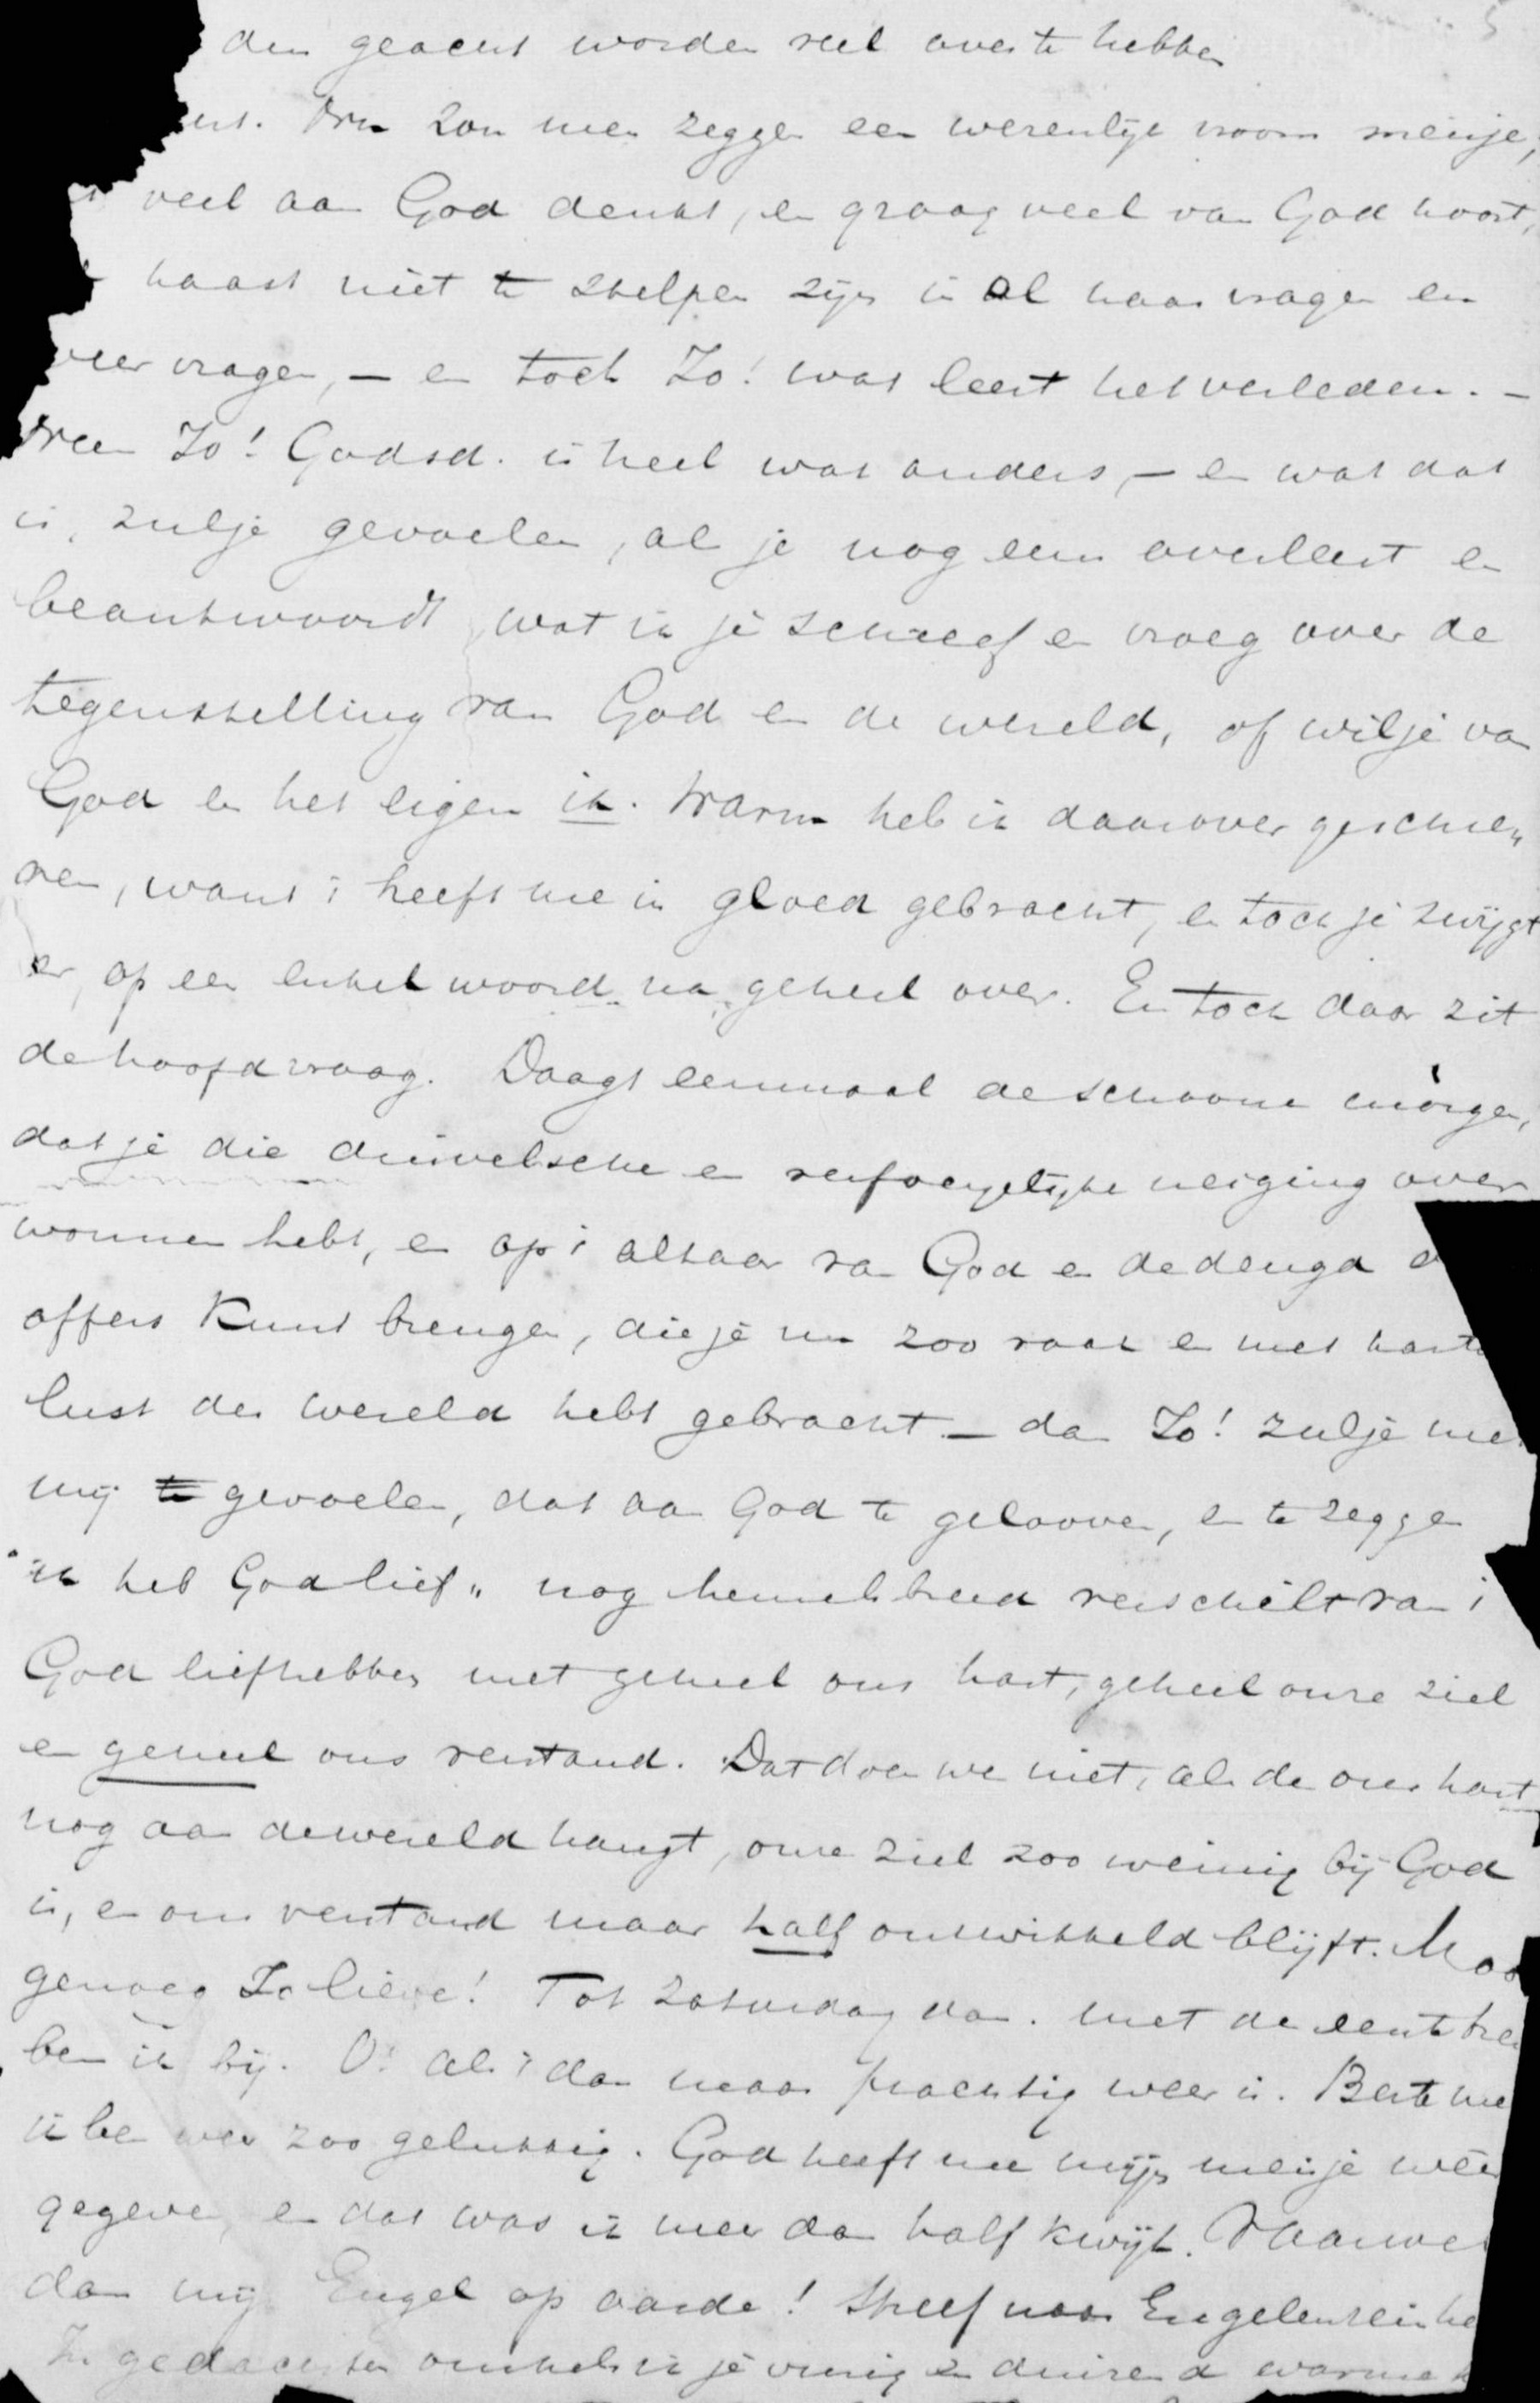 den geacht worden veel over te hebben
Nu zou men zeggen een wezenlijk vroom meisje,
veel aan God denkt, en graag veel van God hoort,
haast niet te stelpen zijn in al haar vragen en
weer vragen, – en toch Jo! wat leert het verleden. –
Neen Jo! Godsd. is heel wat anders, – en wat dat
is, zul je gevoelen, als je nog eens overleest en
beantwoordt wat ik je schreef en vroeg over de
tegenstelling van God en de wereld, of wil je van
God en het eigen ik. Warm heb ik daarover geschre„
ven, want 't heeft me in gloed gebracht, en toch je zwijgt
er, op een enkel woord na, geheel over. En toch daar zit
de hoofdvraag. Daagt eenmaal de schoone morgen,
dat je die duivelsche en verfoeyelijke neiging over
wonnen hebt, en op 't altaar van God en de deugd
offers kunt brengen, die je nu zoo vaak en met harte
lust der wereld hebt gebracht – dan Jo! zul je met
mij te gevoelen, dat aan God te gelooven, en te zeggen
"ik heb God lief" nog hemelsbreed verschilt van 't
God liefhebben met geheel ons hart, geheel onze ziel
en geheel ons verstand. Dat doen we niet, als de ons hart
nog aan de wereld hangt, onze ziel zoo weinig bij God
is, en ons verstand maar half ontwikkeld blijft. Maar
genoeg Jo lieve! Tot Zaturdag dan. met de eerste trein
ben ik bij. O! als 't dan maar prachtig weer is. Beste me
ik ben weer zoo gelukkig. God heeft me mijn meisje weer
gegeven, en dat was ik meer dan half kwijt. Vaarwel
dan mijn Engel op aarde! Streef naar Engelenreinhe
In gedachten omhels ik je vurig en duizend warme k